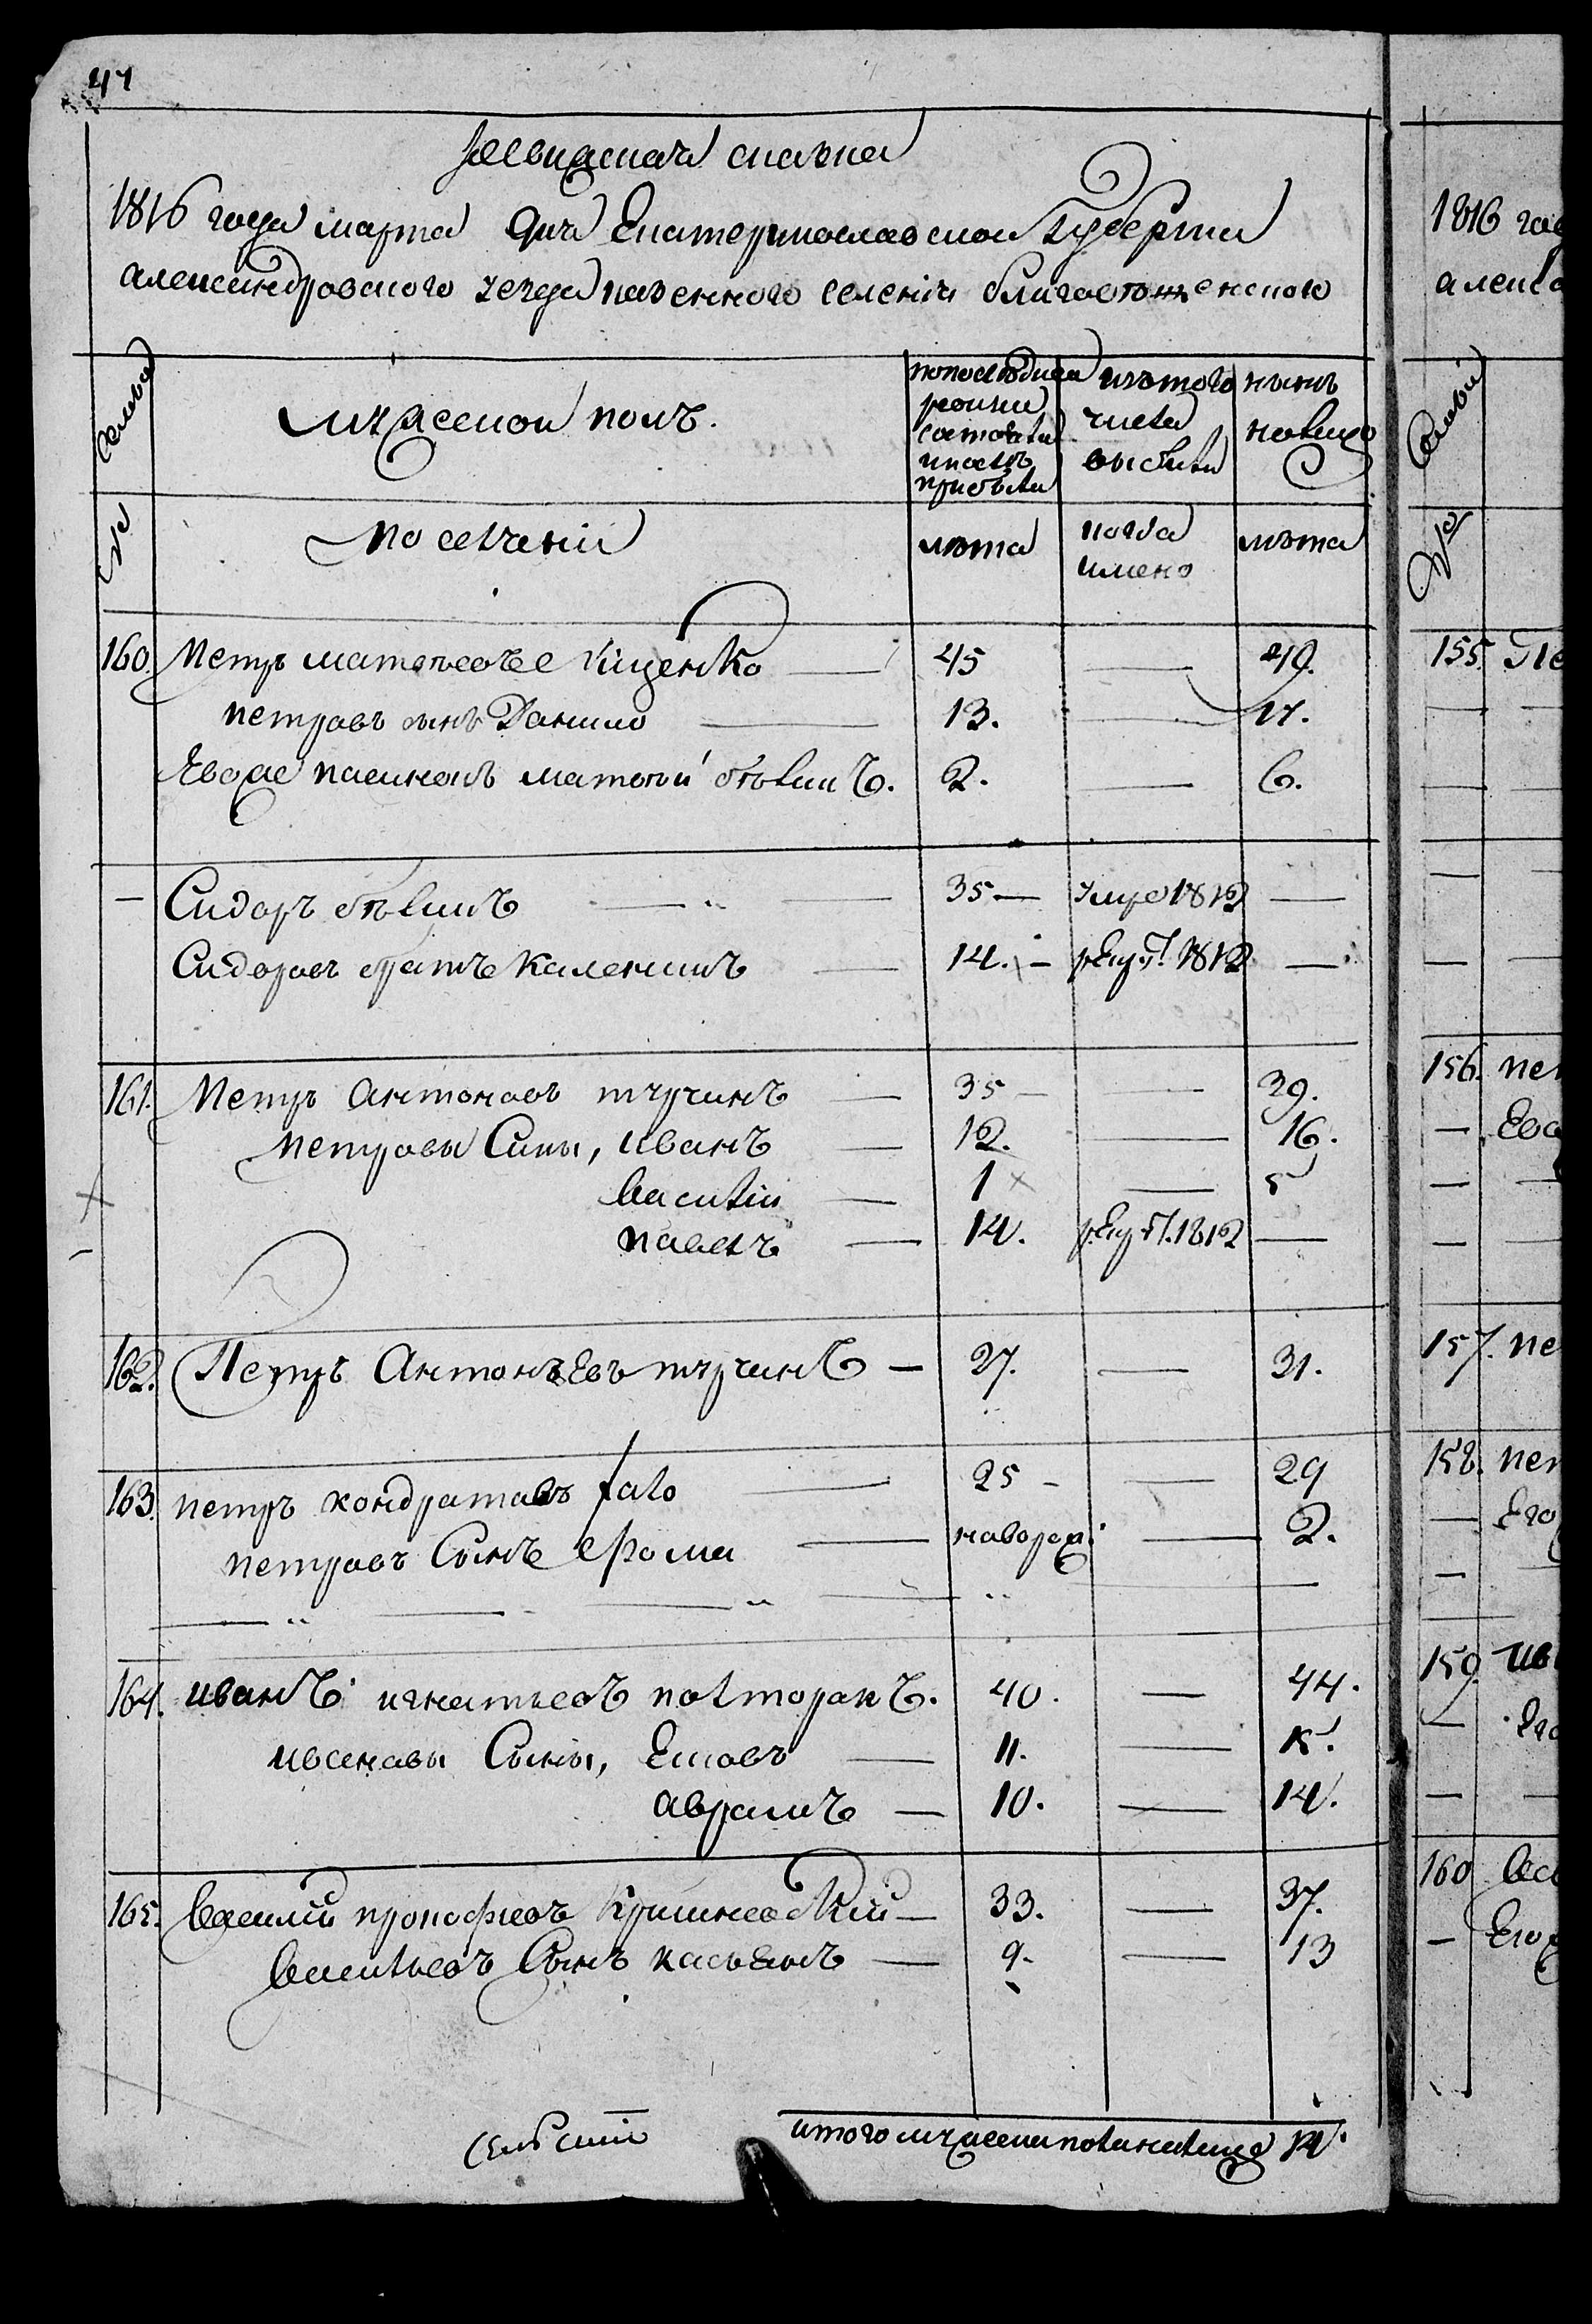 47
Ревизская сказка
1816 года марта дня Екатеринославской Губернии
александровского уезда казенного селения благовещенского
семьи
мужескои полъ.
попоследней ревизии состояли и после прибыли
изтого числа выбыли
нынѣ налицо
№
По селению
лѣта
когда имено
лѣта
160. Петръ матвѣевъ Гиценко 45 — 49.
петровъ сынъ Данило 13. — 17.
матвѣй бѣликъ. 2. — 6.
— Сидоръ бѣликъ 35 — умре 1812 —
Сидоровъ братъ каленикъ 14. — рекрут. 1812 —
161. Петръ Антоновъ турчинъ — 35 — 39.
Петровы Сыны, иванъ — 12. — 16.
Василій — 1 — 5
павелъ — 14. рекрут. 1812 —
162. Петръ Антоньевъ турчинъ — 27. — 31.
163. петръ кондратовъ — 25 — 29
петровъ Сынъ Фома — наворож: — 2.
164. иванъ игнатьевъ полторакъ. 40. — 44.
ивановы Сыны, Яковъ — 11. — 15.
аврамъ — 10. — 14.
165. Василий прокофиевъ Кришневский — 33. — 37.
Васильевъ Сынъ касьянъ — 9. — 13
итого мужеска пола налицо 14.
1816 год
алекса
семьи
№
155. Пе
156. пет
157. пе
158. пет
159. ив
160 Вас